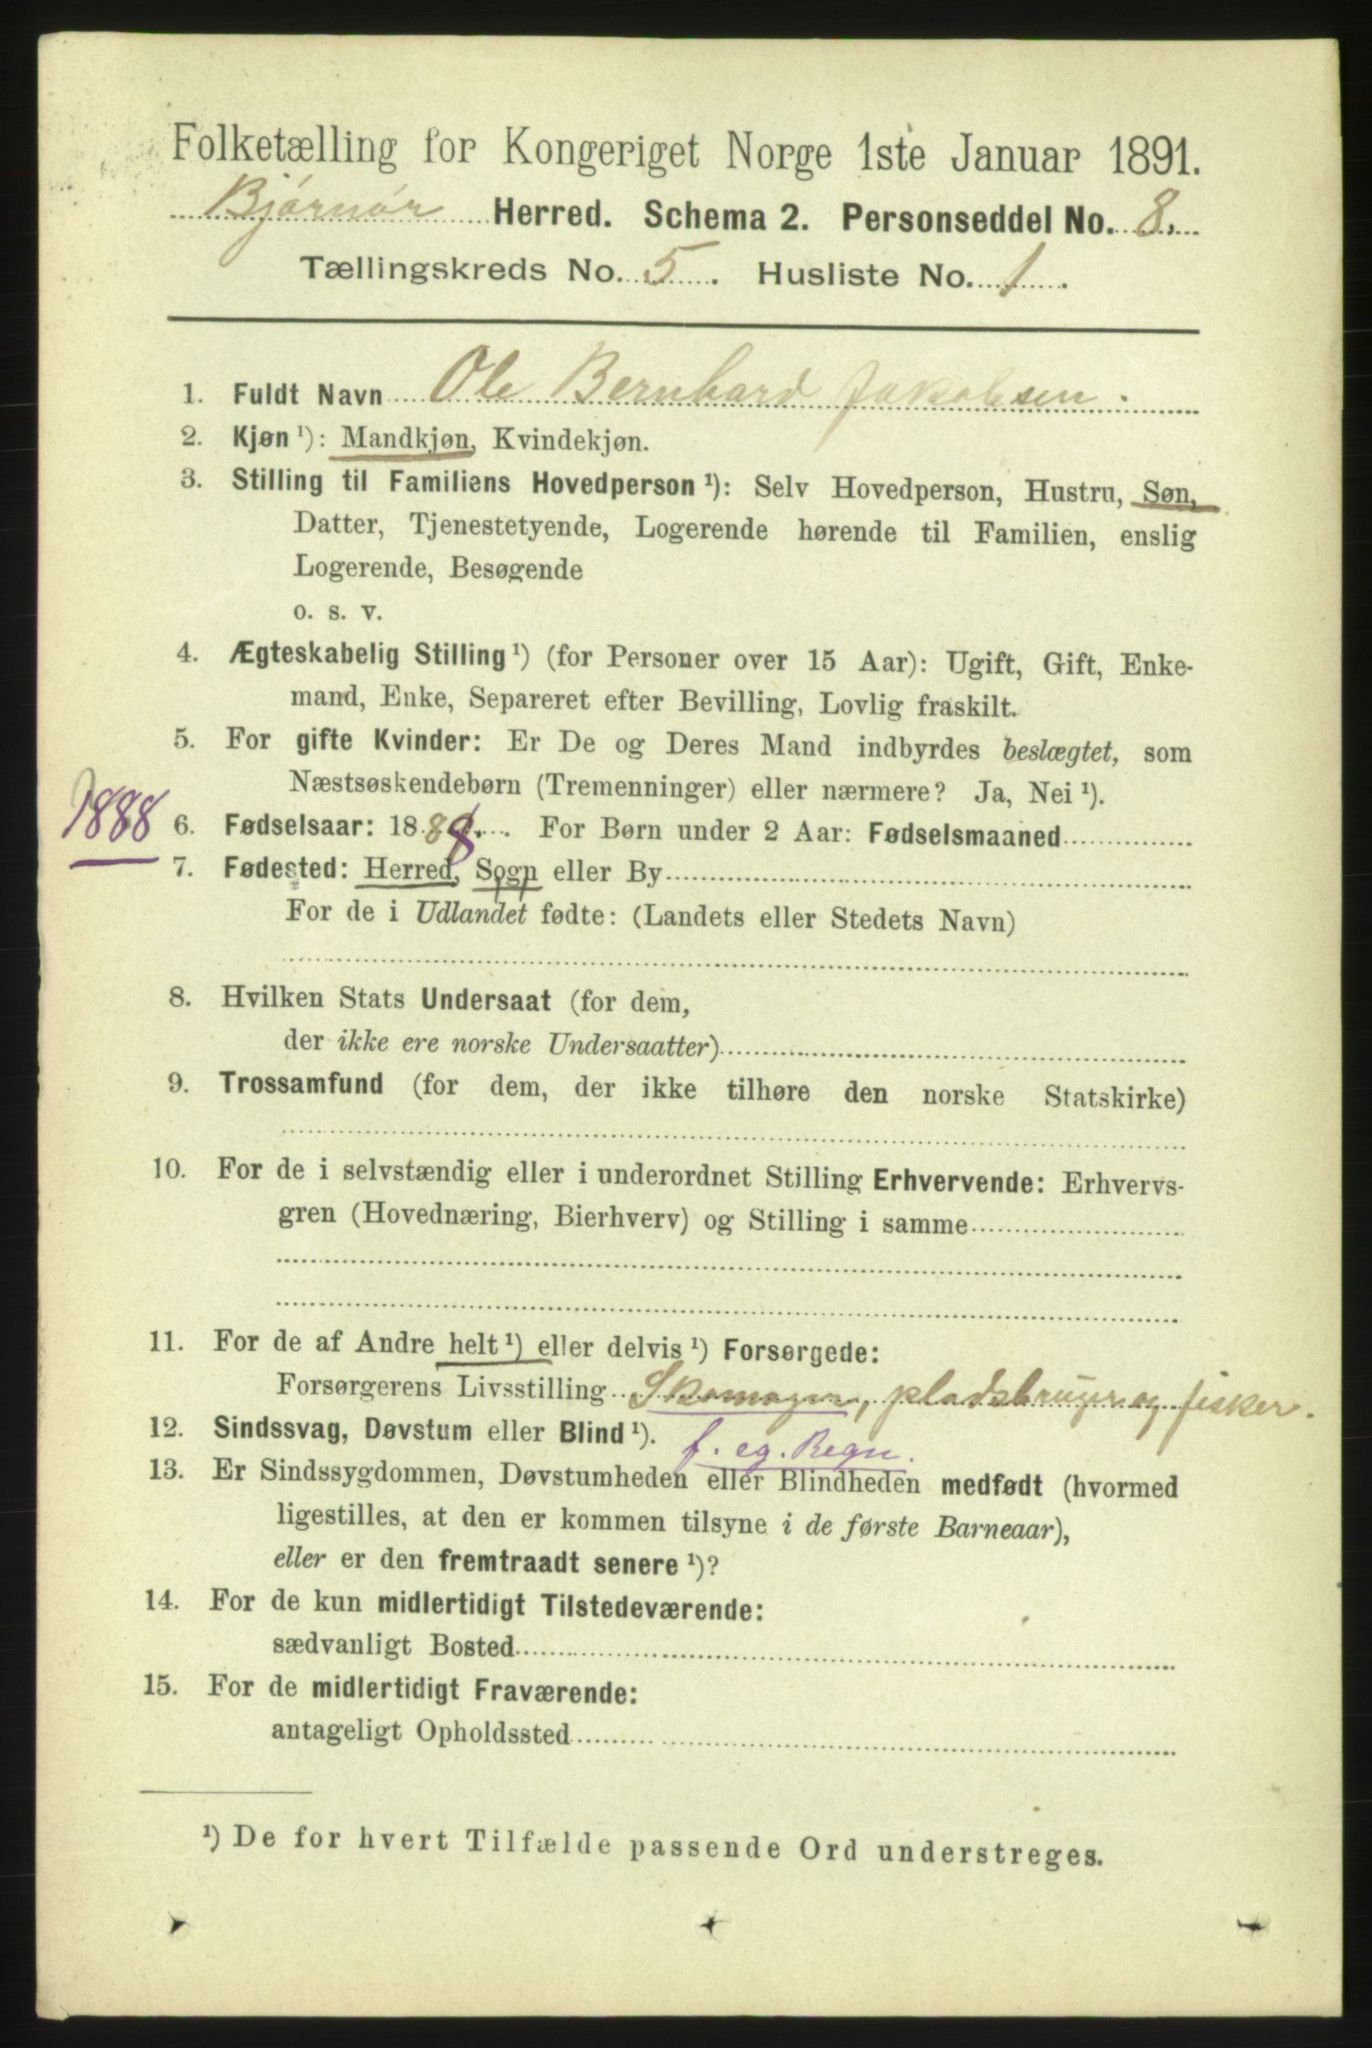 Folketælling for Kongeriget Norge 1ste Januar 1891.
Bjørnør Herred. Schema 2. Personseddel No. 8.
Tællingskreds No. 5. Husliste No. 1.
1. Fuldt Navn Ole Bernhard Jakobsen.
2. Kjøn ¹): Mandkjøn, Kvindekjøn.
3. Stilling til Familiens Hovedperson ¹): Selv Hovedperson, Hustru, Søn,
Datter, Tjenestetyende, Logerende hørende til Familien, enslig
Logerende, Besøgende
o. s. v.
4. Ægteskabelig Stilling ¹) (for Personer over 15 Aar): Ugift, Gift, Enke-
mand, Enke, Separeret efter Bevilling, Lovlig fraskilt.
5. For gifte Kvinder: Er De og Deres Mand indbyrdes beslægtet, som
Næstsøskendebørn (Tremenninger) eller nærmere? Ja, Nei ¹).
1888 6. Fødselsaar: 1888. For Børn under 2 Aar: Fødselsmaaned
7. Fødested: Herred, Sogn eller By
For de i Udlandet fødte: (Landets eller Stedets Navn)
8. Hvilken Stats Undersaat (for dem,
der ikke ere norske Undersaatter)
9. Trossamfund (for dem, der ikke tilhøre den norske Statskirke)
10. For de i selvstændig eller i underordnet Stilling Erhvervende: Erhvervs-
gren (Hovednæring, Bierhverv) og Stilling i samme
11. For de af Andre helt ¹) eller delvis ¹) Forsørgede:
Forsørgerens Livsstilling Skomager, pladsbruger og fisker.
12. Sindssvag, Døvstum eller Blind ¹).
f. eg. Regn.
13. Er Sindssygdommen, Døvstumheden eller Blindheden medfødt (hvormed
ligestilles, at den er kommen tilsyne i de første Barneaar),
eller er den fremtraadt senere ¹)?
14. For de kun midlertidigt Tilstedeværende:
sædvanligt Bosted
15. For de midlertidigt Fraværende:
antageligt Opholdssted
¹) De for hvert Tilfælde passende Ord understreges.